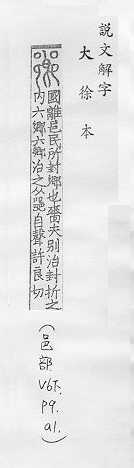 説文解字
大徐本
國離邑民所封鄉也嗇夫別治封圻之
内六鄉六鄉治之从𨛜皀聲許良切
(邑部
V6下.
P9.
a1.)